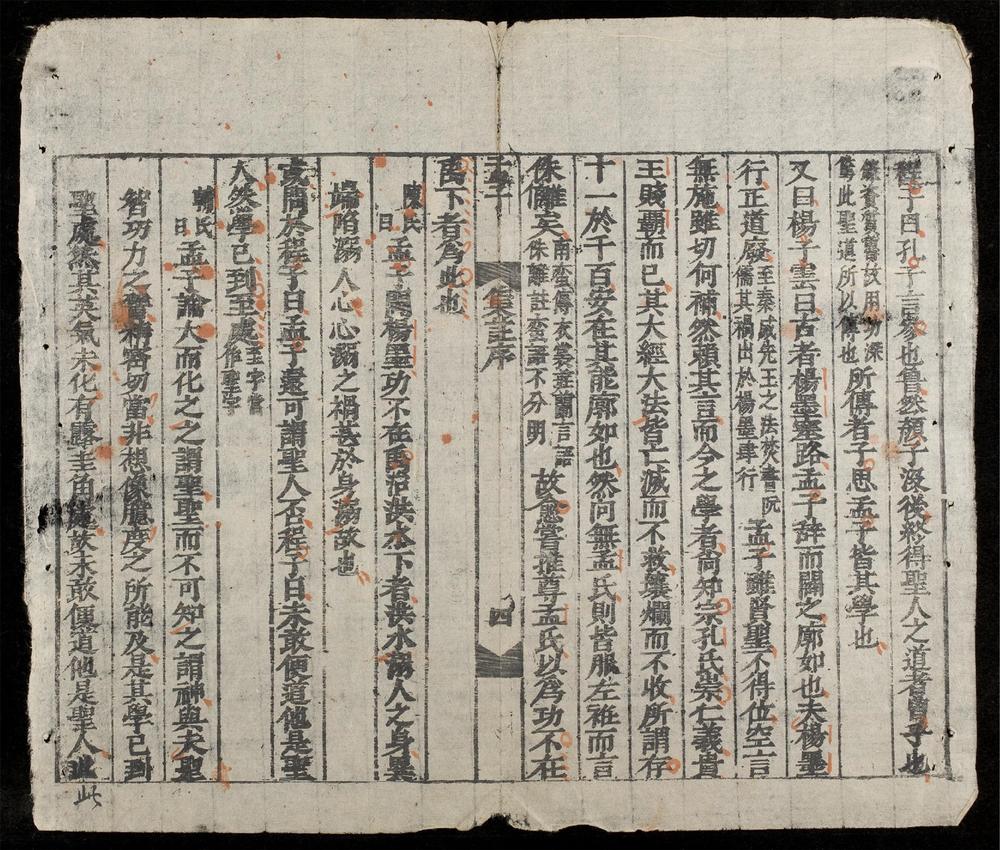 程子曰孔子言參也魯然顏子沒後終得聖人之道者曾子也
爲此聖道所以傳也所傳者子思孟子皆其學也
又曰楊子雲曰古者楊墨塞路孟子辞而闢之廓如也夫楊墨
行正道廢至秦滅先王之法焚書阬儒其禍出於楊墨肆行孟子雖賢聖不得位空言
無施雖切何補然賴其言而今之學者尚知宗孔氏崇仁義貴
王賤覇而已其大經大法皆亡滅而不救壞爛而不收所謂存
十一於千百安在其能廓如也然向無孟氏則皆服左袵而言
侏離矣南蛮傳衣裳斑蘭言語侏離註蛮語不分明故愈嘗推尊孟氏以爲功不在
孟子 集註序 四
禹下者爲此也
陳氏曰孟子闢楊墨功不在禹治洪水下者洪水溺人之身異
端陷溺人心心溺之禍甚於身溺故也
或問於程子曰孟子還可謂聖人否程子曰未敢便道他是聖
人然學已到至處至字當作聖字
輔氏曰孟子論大而化之之謂聖聖而不可知之謂神與夫聖
智功力之譬精密切當非想像臆度之所能及是其學已到
聖處然其英氣未化有露圭角處故未敢便道他是聖人此
此